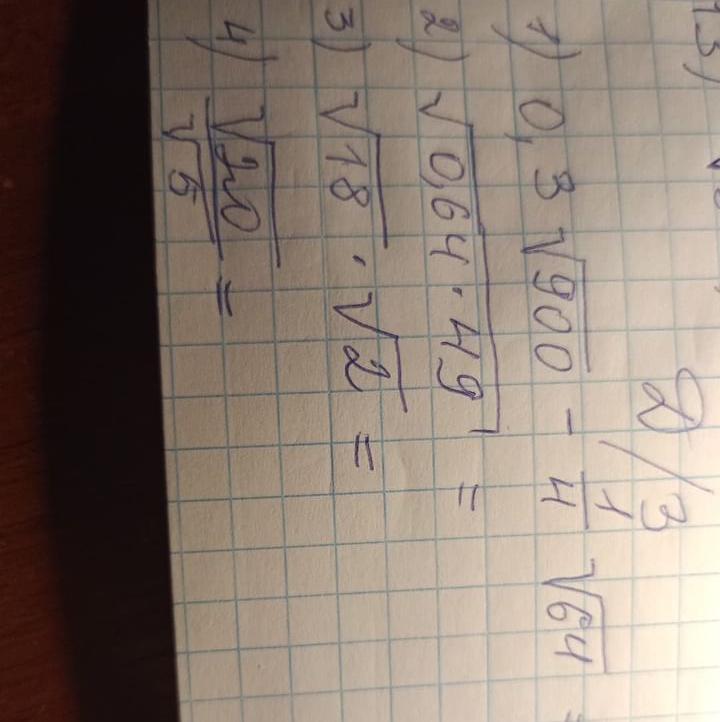 Д/З
1) 0,3√900 - 1/4 √64 =
2) √0,64 · 49 =
3) √18 · √2 =
4) √20/√5 =